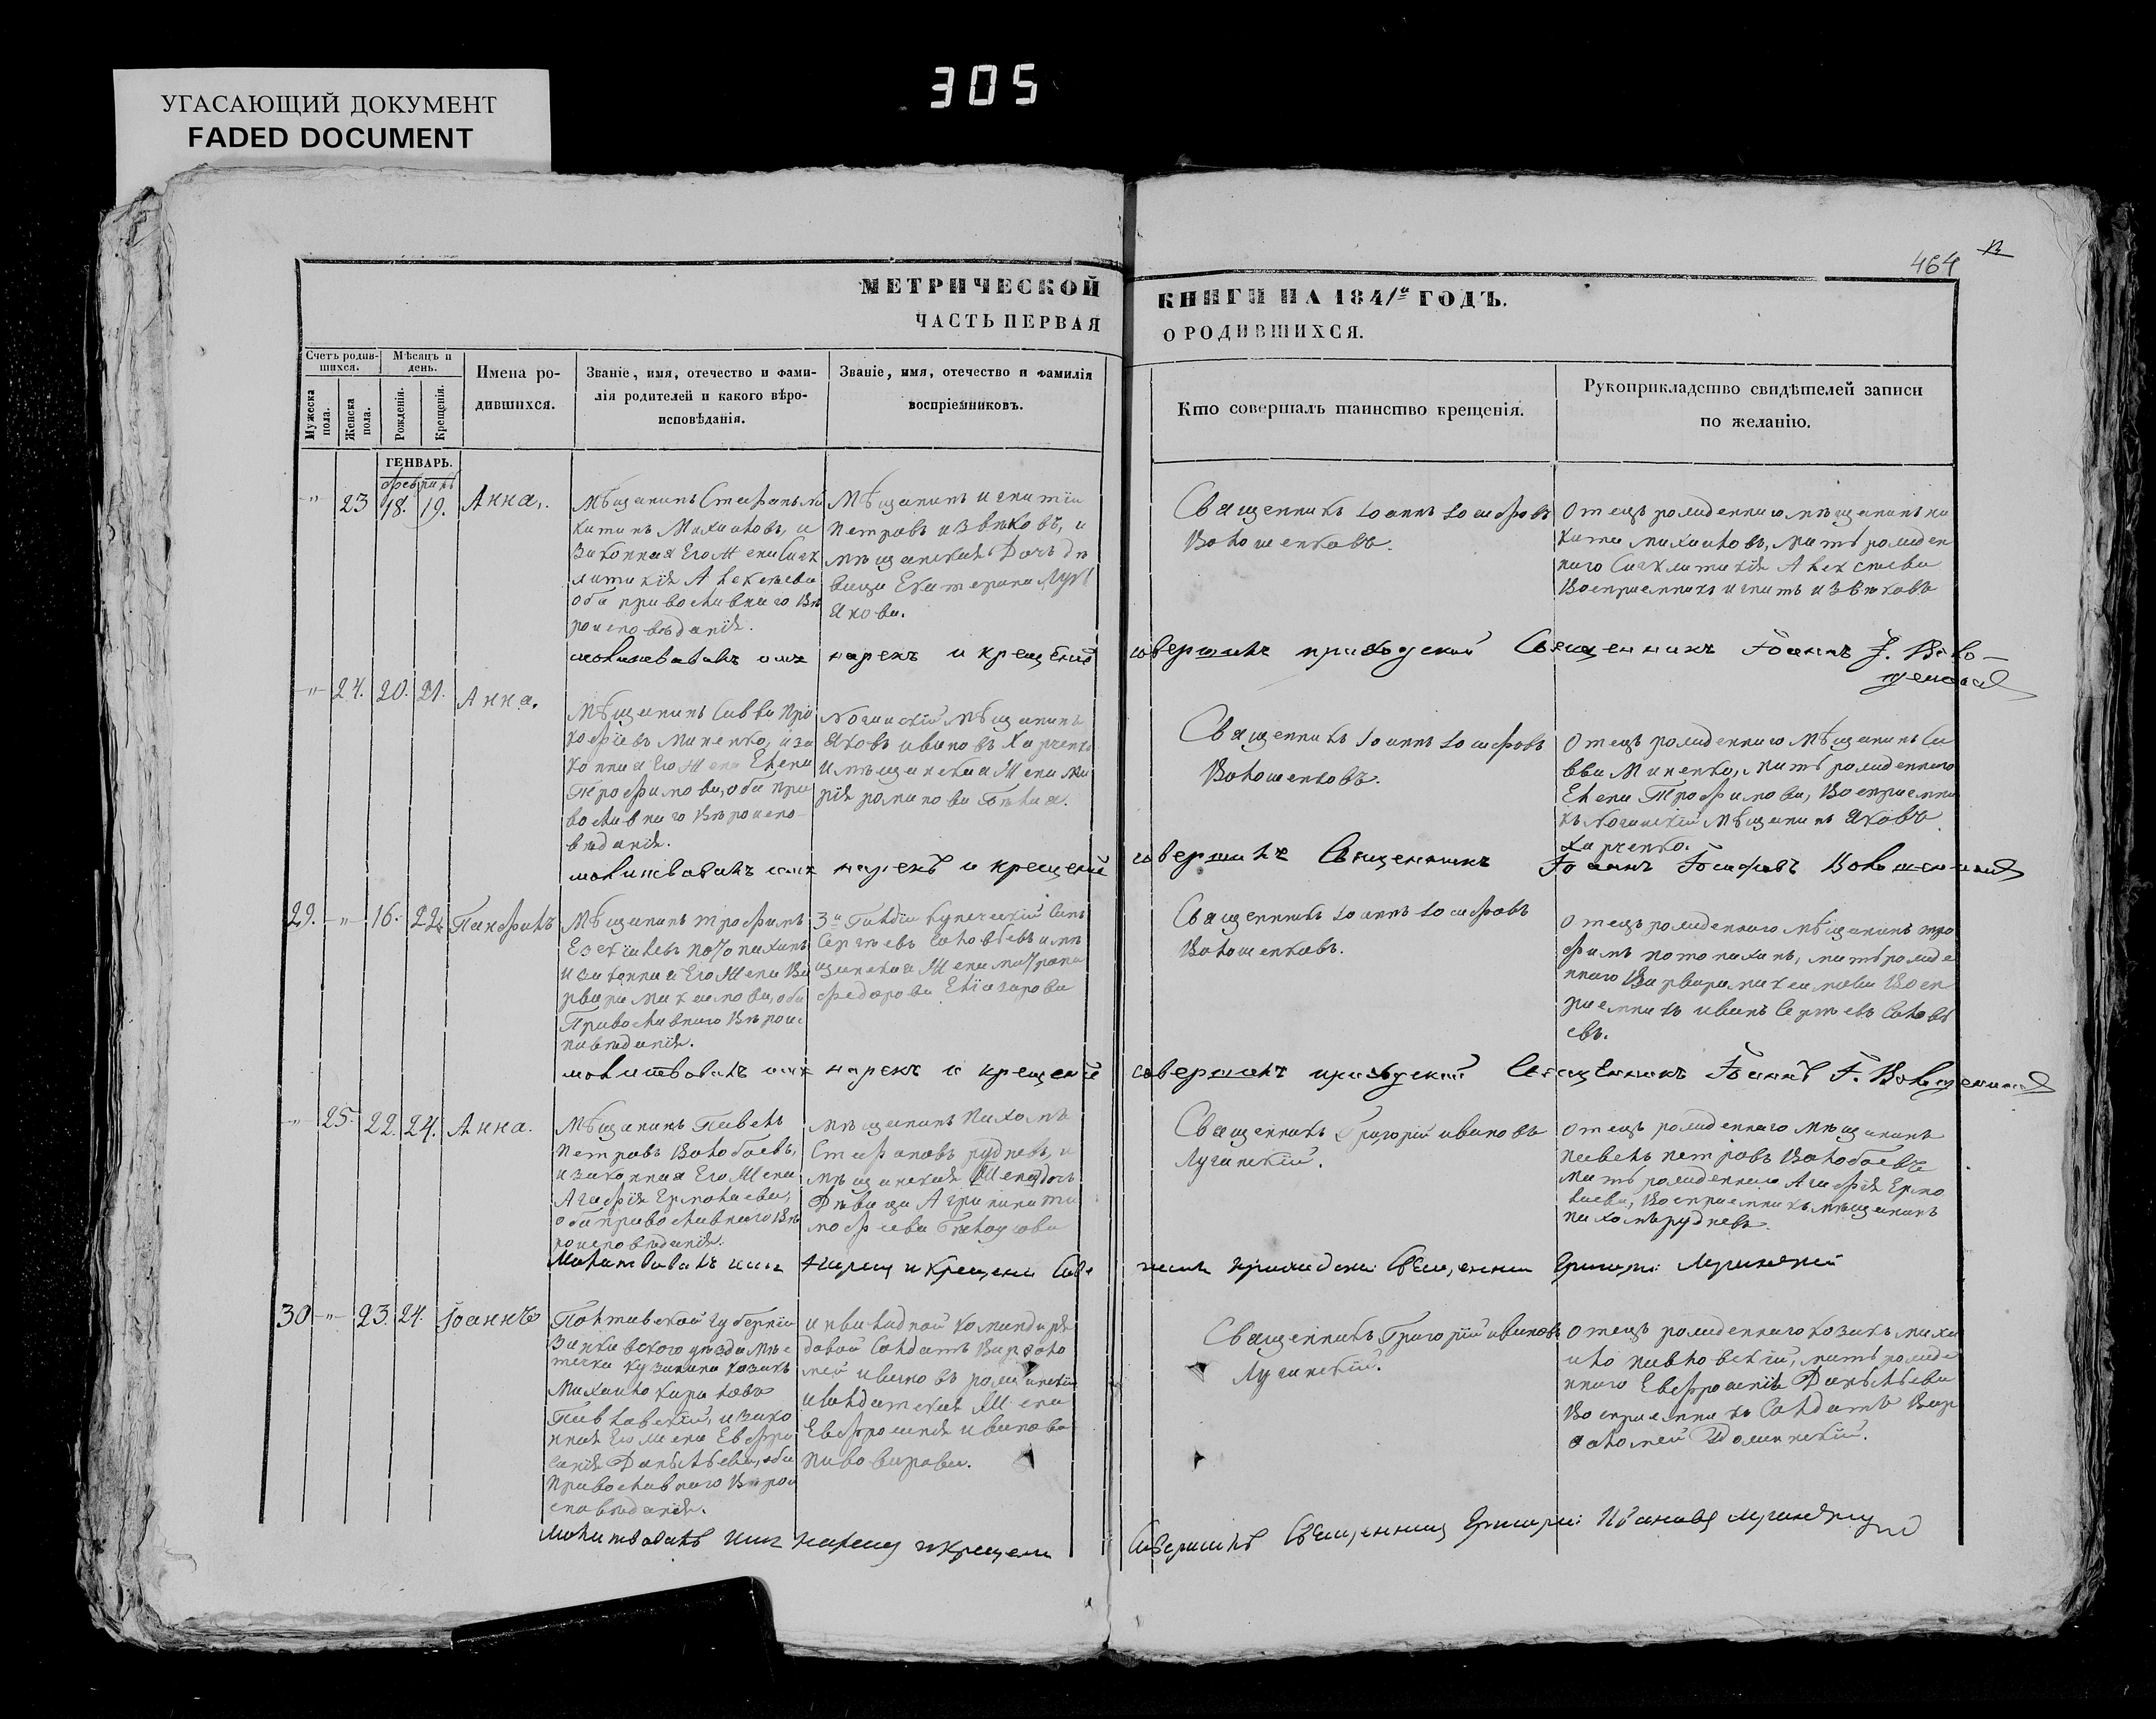 305
УГАСАЮЩИЙ ДОКУМЕНТ
FADED DOCUMENT
464
МЕТРИЧЕСКОЙ
ЧАСТЬ ПЕРВАЯ
КНИГИ НА 1841й ГОДЪ.
О РОДИВШИХСЯ.
Счетъ родив-
шихся.
Мужеска
пола.
Женска
пола.
Мѣсяцъ и
день.
Рожденія.
Крещенія.
Имена ро-
дившихся.
Званіе, имя, отечество и фами-
лія родителей и какого вѣро-
исповѣданія.
Званіе, имя, отечество и фамилія
воспріемниковъ.
Кто совершалъ таинство крещенія.
Рукоприкладство свидѣтелей записи
по желанію.
ГЕНВАРЬ.
февраль
" 23 18. 19. Анна.
Мѣщанинъ Стефанъ Ни
китинъ Михайловъ, и
Законная Его Жена
Алексѣева
оба православнаго вѣ
роисповѣданія.
Мѣщанинъ Игнатій
Петровъ Извѣковъ, и
мѣщанская Дочь дѣ
вица Екатерина Лук
Яхова.
Священникъ Іоаннъ Іосифовъ
Волошенковъ.
Отецъ рожденнаго мѣщанинъ
Михайловъ, мать рожден
наго Алексѣева
Воспріемникъ Игнатъ Извѣковъ
молитвовалъ имя нарекъ и крещеніе совершилъ приходской Священникъ Іоаннъ І. Воло-
" 24. 20. 21. Анна.
Мѣщанинъ Савва Про
кофіевъ Миненко, и за
конная Его Жена Елена
Трофимова, оба пра
вославнаго вѣроиспо-
вѣданія.
Мѣщанинъ
Яковъ Ивановъ Харченко
и мѣщанская Жена Ма
рія Романова Бѣлая.
Священникъ Іоаннъ Іосифовъ
Волошенковъ.
Отецъ рожденнаго Мѣщанинъ Са
вва Миненко, мать рожденнаго
Елена Трофимова, Воспріемни
къ Мѣщанинъ Яковъ
Харченко.
молитвовалъ имя нарекъ и крещеніе совершилъ Священникъ Іоаннъ Іосифовъ Волошенковъ
29. " 16. 22. Панфилъ
Мѣщанинъ Трофимъ
Езекіилевъ Потопахинъ
и законная Его Жена Ва
рвара Максимова, оба
Православнаго вѣроис
повѣданія.
3й Гильдіи купеческій Сынъ
Сергѣевъ Соловьевъ и мѣ
щанская Жена Матрона
Федорова Еліазарова
Священникъ Іоаннъ Іосифовъ
Волошенковъ.
Отецъ рожденнаго Мѣщанинъ Тро
фимъ Потопахинъ, мать рожде
ннаго Варвара Максимова Восп
ріемникъ Иванъ Сергѣевъ Соловь
евъ.
молитвовалъ имя нарекъ и крещеніе совершилъ приходской Священникъ Іоаннъ І. Волошенковъ
" 25. 22. 24. Анна.
Мѣщанинъ Павелъ
Петровъ Волобаевъ,
и законная Его Жена
Агафія Ермолаева,
оба православнаго вѣ
роисповѣданія.
мѣщанинъ Пахомъ
Стефановъ Рудневъ, и
мѣщанская Жена дочь
Дѣвица Агрипина Ти
мофѣева Бѣлоусова
Священникъ Григорій Ивановъ
Лучинскій.
Отецъ рожденнаго Мѣщанинъ
Павелъ Петровъ Волобаевъ
Мать рожденнаго Агафія Ермо
лаева, Воспріемникъ мѣщанинъ
Пахомъ Рудневъ.
30 " 23. 24. Іоаннъ
Полтавской губерніи
Зинковского уѣзда мѣс
течка Кузимина казакъ
Михайло Кириловъ
Павловскій, и зако
нная Его жена Евфро
синія Данилъева, оба
Православнаго Вѣрои
сповѣданія.
инвалидной команды ря
довой Солдатъ Варфоло
мей Ивановъ
и солдатская Жена
Евфросинія Иванова
Пивоварова.
Священникъ Григорій Ивановъ
Лучинскій.
Отецъ рожденнаго козакъ Миха
йло Павловскій, мать рожде
ннаго Евфросинія Данилъева
Воспріемникъ Солдатъ Вар
фоломей
молитвовалъ имя нарекъ и крещеніе Совершилъ Священникъ Григорій Ивановъ Лучинскій